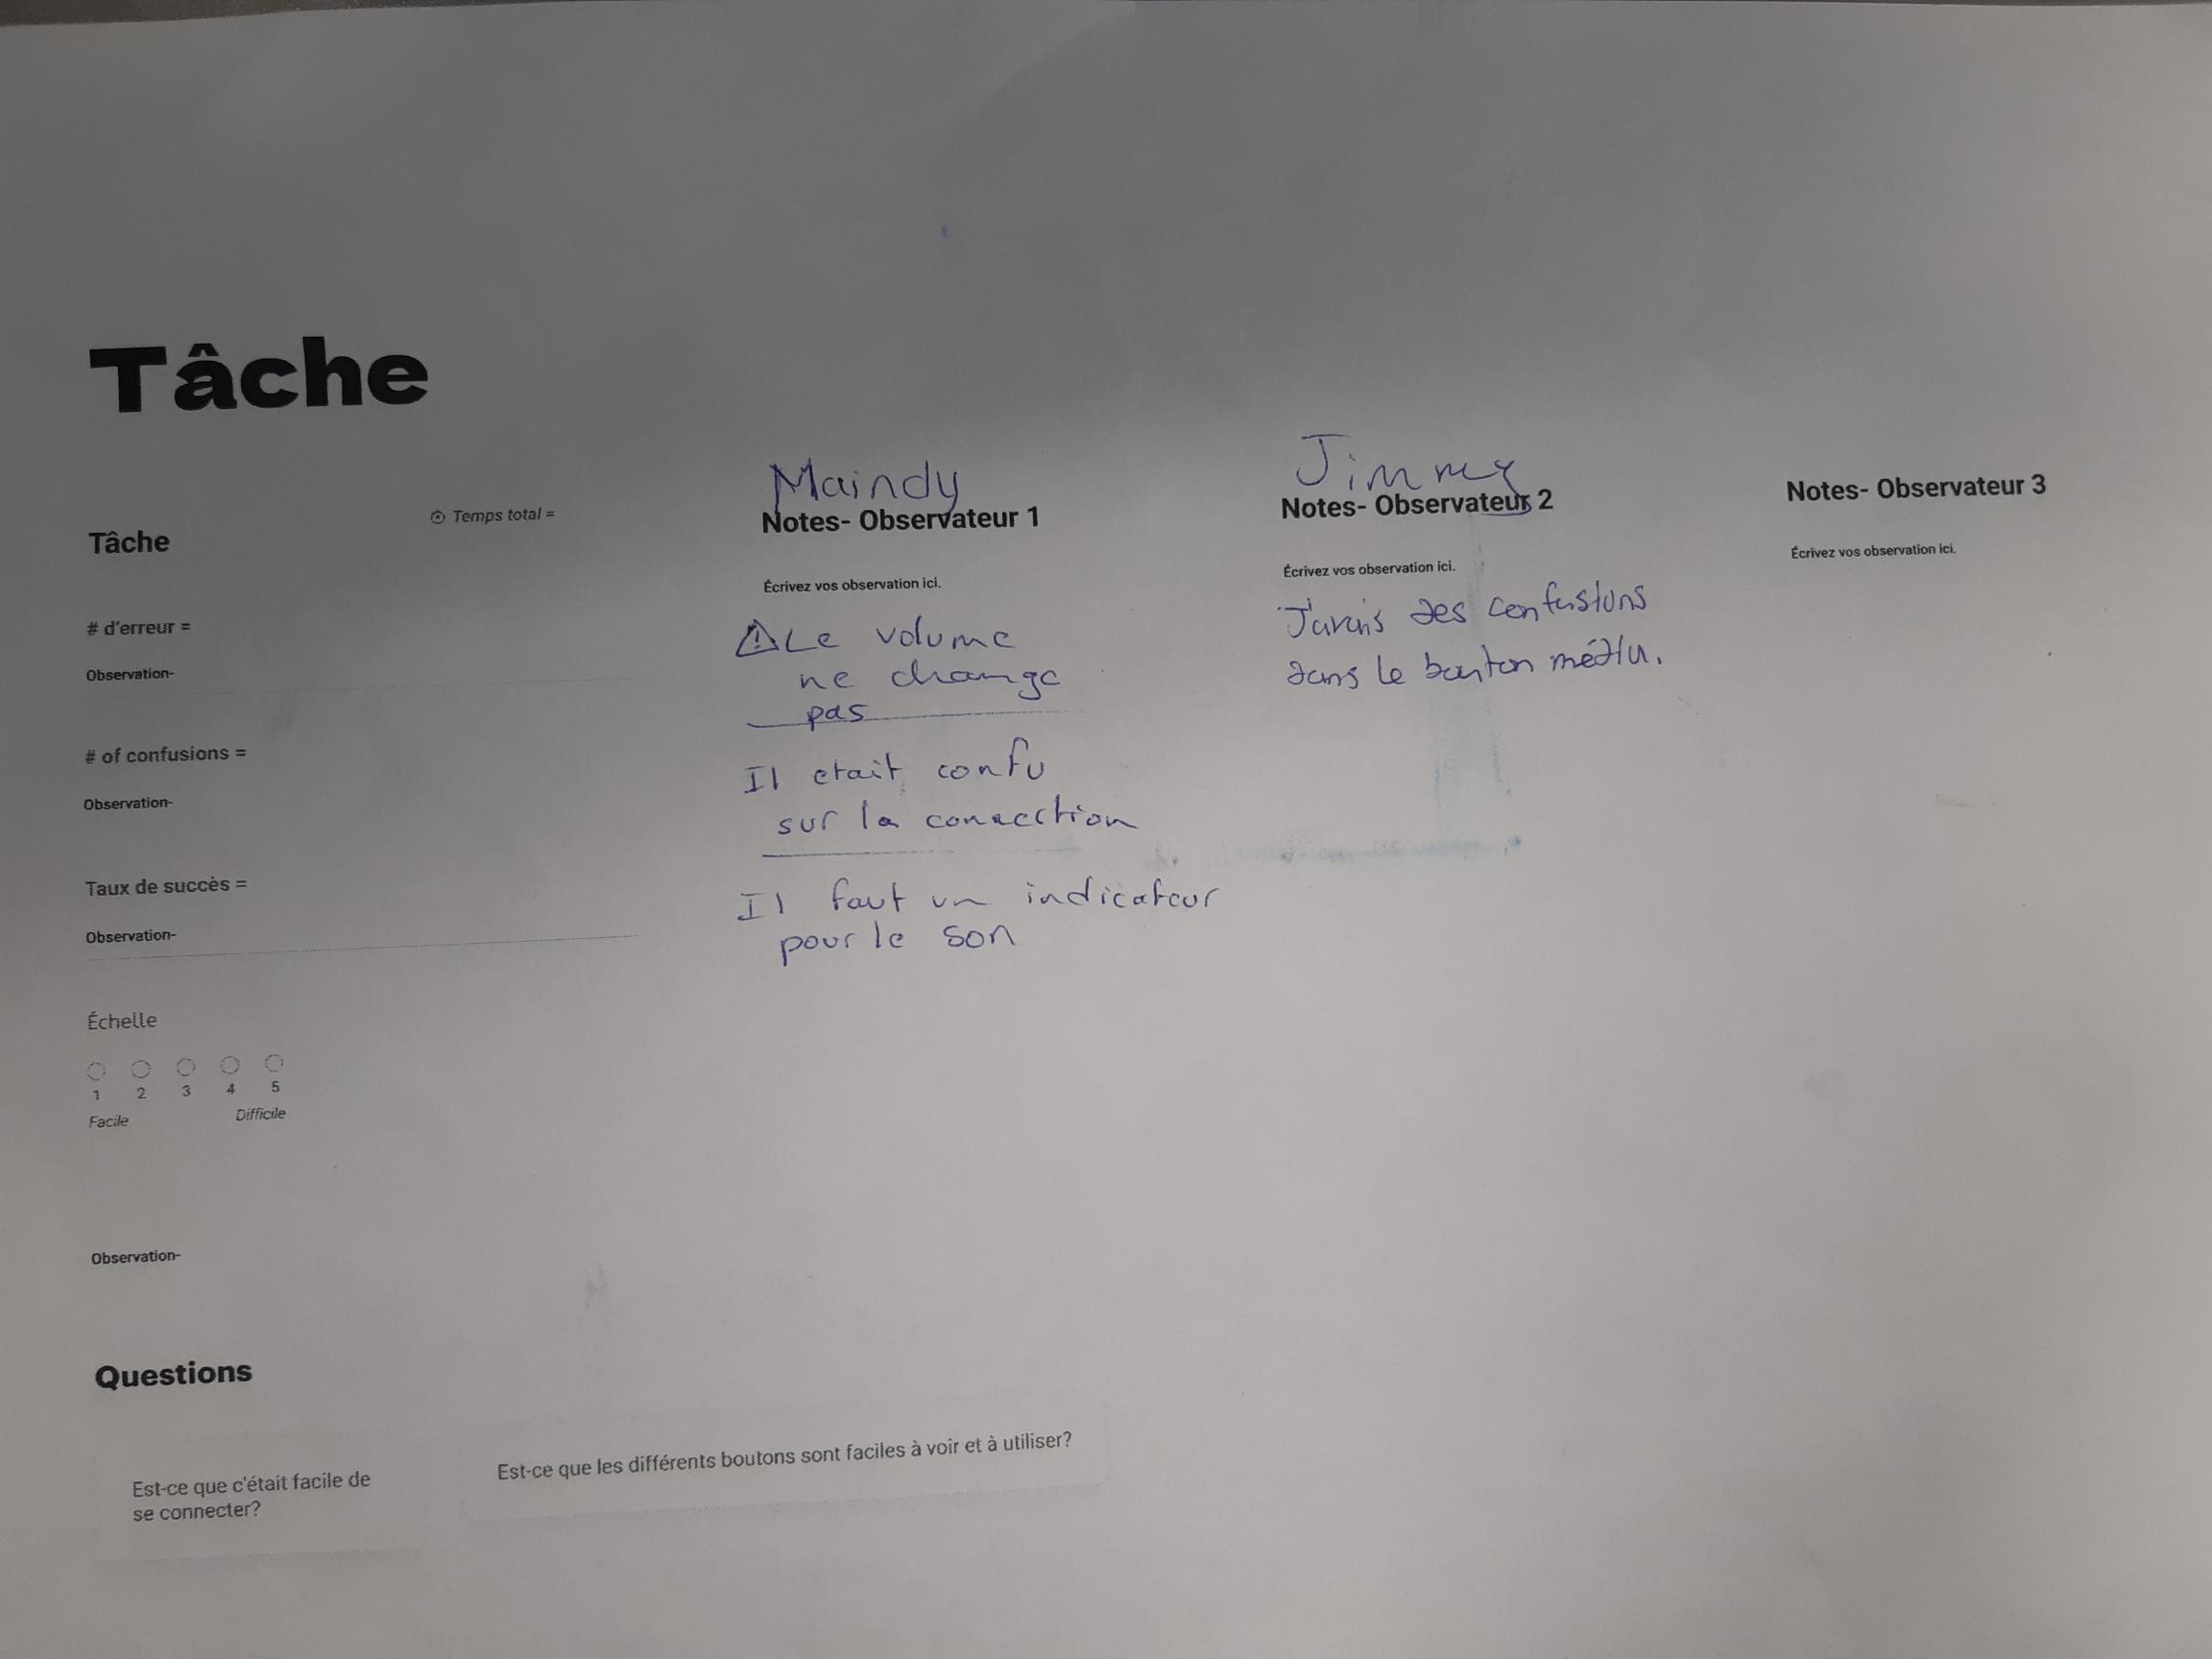 Tâche
Tâche
Temps total =
# d'erreur =
Observation-
# of confusions =
Observation-
Taux de succès =
Observation-
Échelle
1 2 3 4 5
Facile Difficile
Observation-
Maindy
Notes- Observateur 1
Écrivez vos observation ici.
Le volume
ne change
pas
Il etait confu
sur la conection
Il faut un indicateur
pour le son
Jimmy
Notes- Observateur 2
Écrivez vos observation ici.
J'avais des confusions
dans le bouton média.
Notes- Observateur 3
Écrivez vos observation ici.
Questions
Est-ce que c'était facile de
se connecter?
Est-ce que les différents boutons sont faciles à voir et à utiliser?